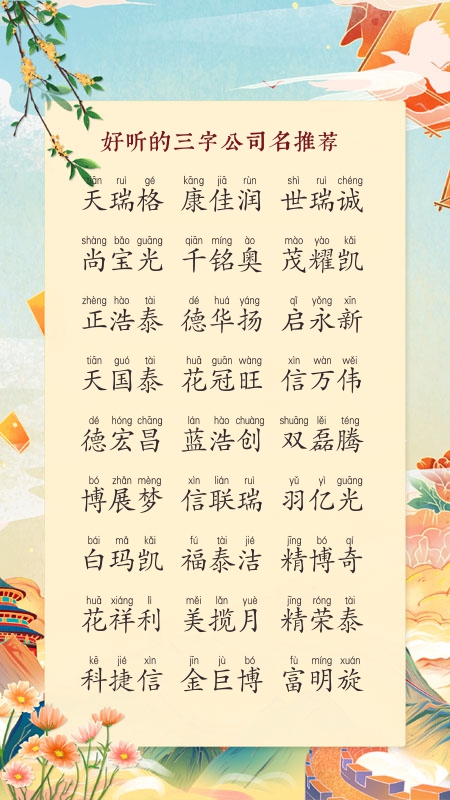 好听的三字公司名推荐
tiān ruì gé kāng jiā rùn shì ruì chéng
天瑞格 康佳润 世瑞诚
shàng bǎo guāng qiān míng ào mào yào kǎi
尚宝光 千铭奥 茂耀凯
zhèng hào tài dé huá yáng qǐ yǒng xīn
正浩泰 德华扬 启永新
tiān guó tài huā guān wàng xìn wàn wěi
天国泰 花冠旺 信万伟
dé hóng chāng lán hào chuàng shuāng lěi téng
德宏昌 蓝浩创 双磊腾
bó zhǎn mèng xìn lián ruì yǔ yì guāng
博展梦 信联瑞 羽亿光
bái mǎ kǎi fú tài jié jīng bó qí
白玛凯 福泰洁 精博奇
huā xiáng lì měi lǎn yuè jīng róng tài
花祥利 美揽月 精荣泰
kē jié xìn jīn jù bó fù míng xuán
科捷信 金巨博 富明旋